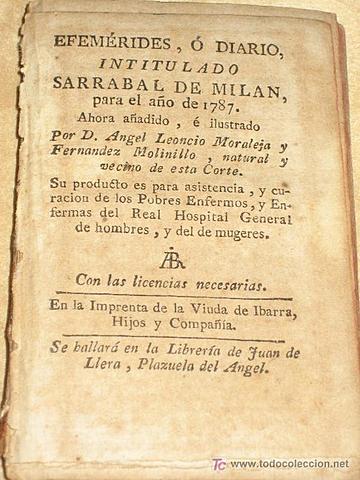 EFEMÉRIDES, Ó DIARIO,
INTITULADO
SARRABAL DE MILAN,
para el año de 1787.
Ahora añadido, é ilustrado
Por D. Angel Leoncio Moraleja y
Fernandez Molinillo, natural y
vecino de esta Corte.
Su producto es para asistencia, y cu-
racion de los Pobres Enfermos, y En-
fermas del Real Hospital General
de hombres, y del de mugeres.
Con las licencias necesarias.
En la Imprenta de la Viuda de Ibarra,
Hijos y Compañía.
Se hallará en la Librería de Juan de
Llera, Plazuela del Angel.
www.todocoleccion.net